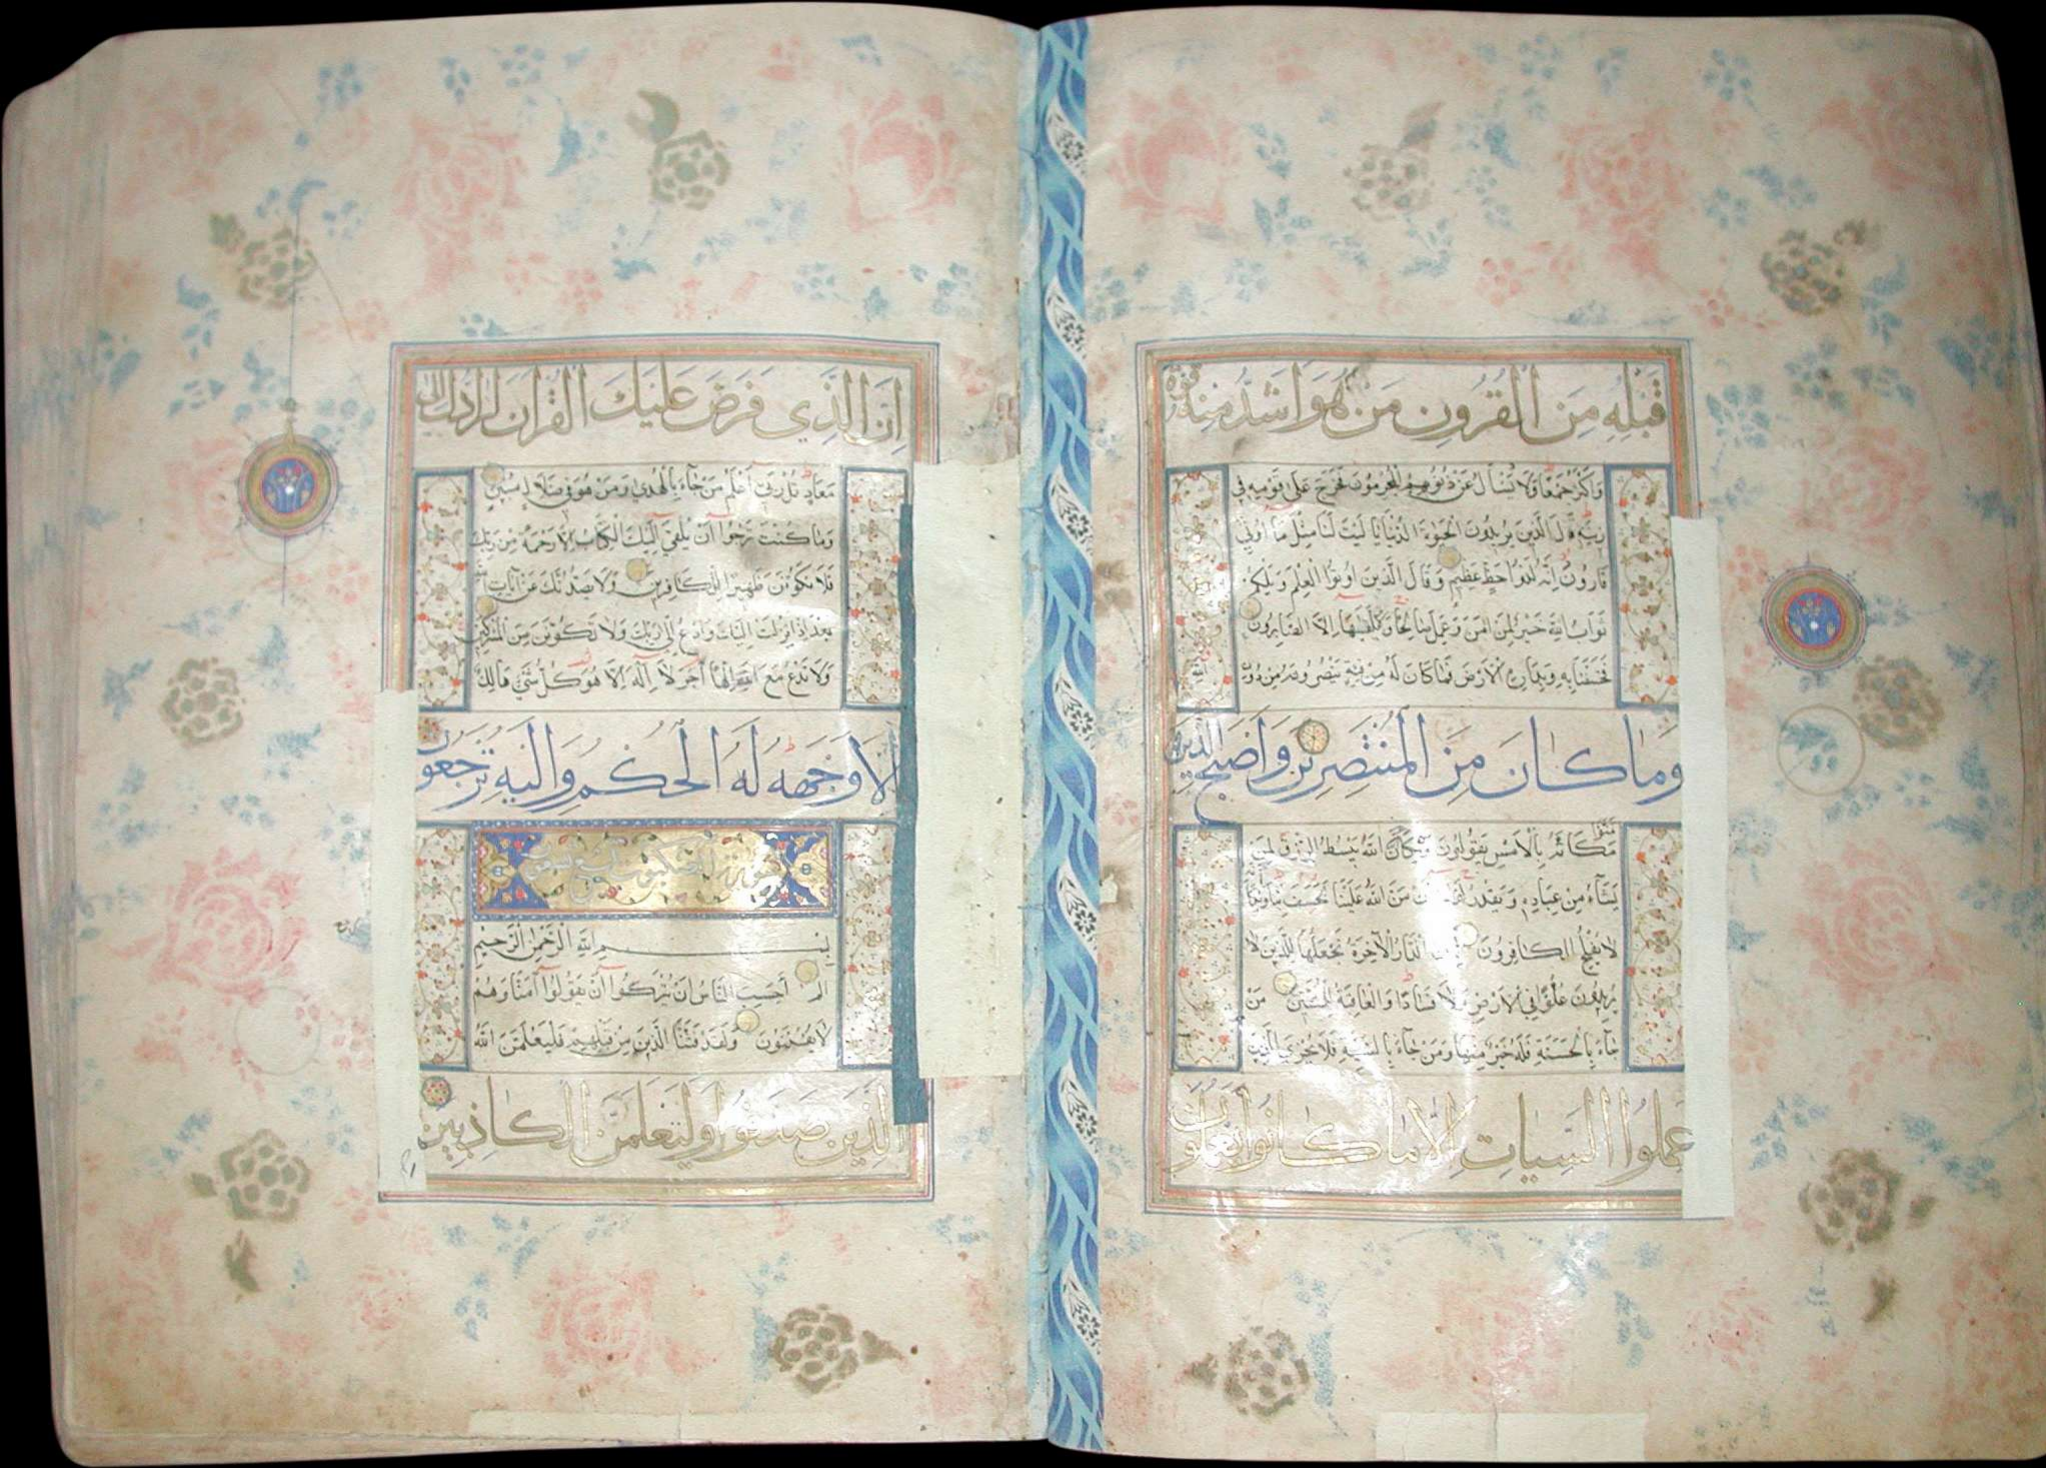 قَبْلِهِ مِنَ الْقُرُونِ مَنْ هُوَ اَشَدُّ مِنْهُ قُوَّةً
وَاَكْثَرُ جَمْعًا وَلَا يُسْأَلُ عَنْ ذُنُوبِهِمُ الْمُجْرِمُونَ فَخَرَجَ عَلَى قَوْمِهِ فِي
زِينَتِهِ قَالَ الَّذِينَ يُرِيدُونَ الْحَيٰوةَ الدُّنْيَا يَا لَيْتَ لَنَا مِثْلَ مَا اُوتِيَ
قَارُونُ اِنَّهُ لَذُو حَظٍّ عَظِيمٍ وَقَالَ الَّذِينَ اُوتُوا الْعِلْمَ وَيْلَكُمْ
ثَوَابُ اللّٰهِ خَيْرٌ لِمَنْ اٰمَنَ وَعَمِلَ صَالِحًا وَلَا يُلَقّٰيهَا اِلَّا الصَّابِرُونَ
فَخَسَفْنَا بِهِ وَبِدَارِهِ الْاَرْضَ فَمَا كَانَ لَهُ مِنْ فِئَةٍ يَنْصُرُونَهُ مِنْ دُونِ اللّٰهِ
وَمَا كَانَ مِنَ الْمُنْتَصِرِينَ وَاَصْبَحَ الَّذِينَ
تَمَنَّوْا مَكَانَهُ بِالْاَمْسِ يَقُولُونَ وَيْكَاَنَّ اللّٰهَ يَبْسُطُ الرِّزْقَ لِمَنْ
يَشَآءُ مِنْ عِبَادِهِ وَيَقْدِرُ لَوْلَا اَنْ مَنَّ اللّٰهُ عَلَيْنَا لَخَسَفَ بِنَا وَيْكَاَنَّهُ
لَا يُفْلِحُ الْكَافِرُونَ تِلْكَ الدَّارُ الْاٰخِرَةُ نَجْعَلُهَا لِلَّذِينَ لَا
يُرِيدُونَ عُلُوًّا فِي الْاَرْضِ وَلَا فَسَادًا وَالْعَاقِبَةُ لِلْمُتَّقِينَ مَنْ
جَآءَ بِالْحَسَنَةِ فَلَهُ خَيْرٌ مِنْهَا وَمَنْ جَآءَ بِالسَّيِّئَةِ فَلَا يُجْزَى الَّذِينَ
عَمِلُوا السَّيِّاٰتِ اِلَّا مَا كَانُوا يَعْمَلُونَ
اِنَّ الَّذِي فَرَضَ عَلَيْكَ الْقُرْاٰنَ لَرَادُّكَ اِلَى
مَعَادٍ قُلْ رَبِّي اَعْلَمُ مَنْ جَآءَ بِالْهُدَى وَمَنْ هُوَ فِي ضَلَالٍ مُبِينٍ
وَمَا كُنْتَ تَرْجُوا اَنْ يُلْقَى اِلَيْكَ الْكِتَابُ اِلَّا رَحْمَةً مِنْ رَبِّكَ
فَلَا تَكُونَنَّ ظَهِيرًا لِلْكَافِرِينَ وَلَا يَصُدُّنَّكَ عَنْ اٰيَاتِ اللّٰهِ
بَعْدَ اِذْ اُنْزِلَتْ اِلَيْكَ وَادْعُ اِلَى رَبِّكَ وَلَا تَكُونَنَّ مِنَ الْمُشْرِكِينَ
وَلَا تَدْعُ مَعَ اللّٰهِ اِلٰهًا اٰخَرَ لَا اِلٰهَ اِلَّا هُوَ كُلُّ شَيْءٍ هَالِكٌ
اِلَّا وَجْهَهُ لَهُ الْحُكْمُ وَاِلَيْهِ تُرْجَعُونَ
سورة العنكبوت
بِسْمِ اللّٰهِ الرَّحْمٰنِ الرَّحِيمِ
الم اَحَسِبَ النَّاسُ اَنْ يُتْرَكُوا اَنْ يَقُولُوا اٰمَنَّا وَهُمْ
لَا يُفْتَنُونَ وَلَقَدْ فَتَنَّا الَّذِينَ مِنْ قَبْلِهِمْ فَلَيَعْلَمَنَّ اللّٰهُ
الَّذِينَ صَدَقُوا وَلَيَعْلَمَنَّ الْكَاذِبِينَ